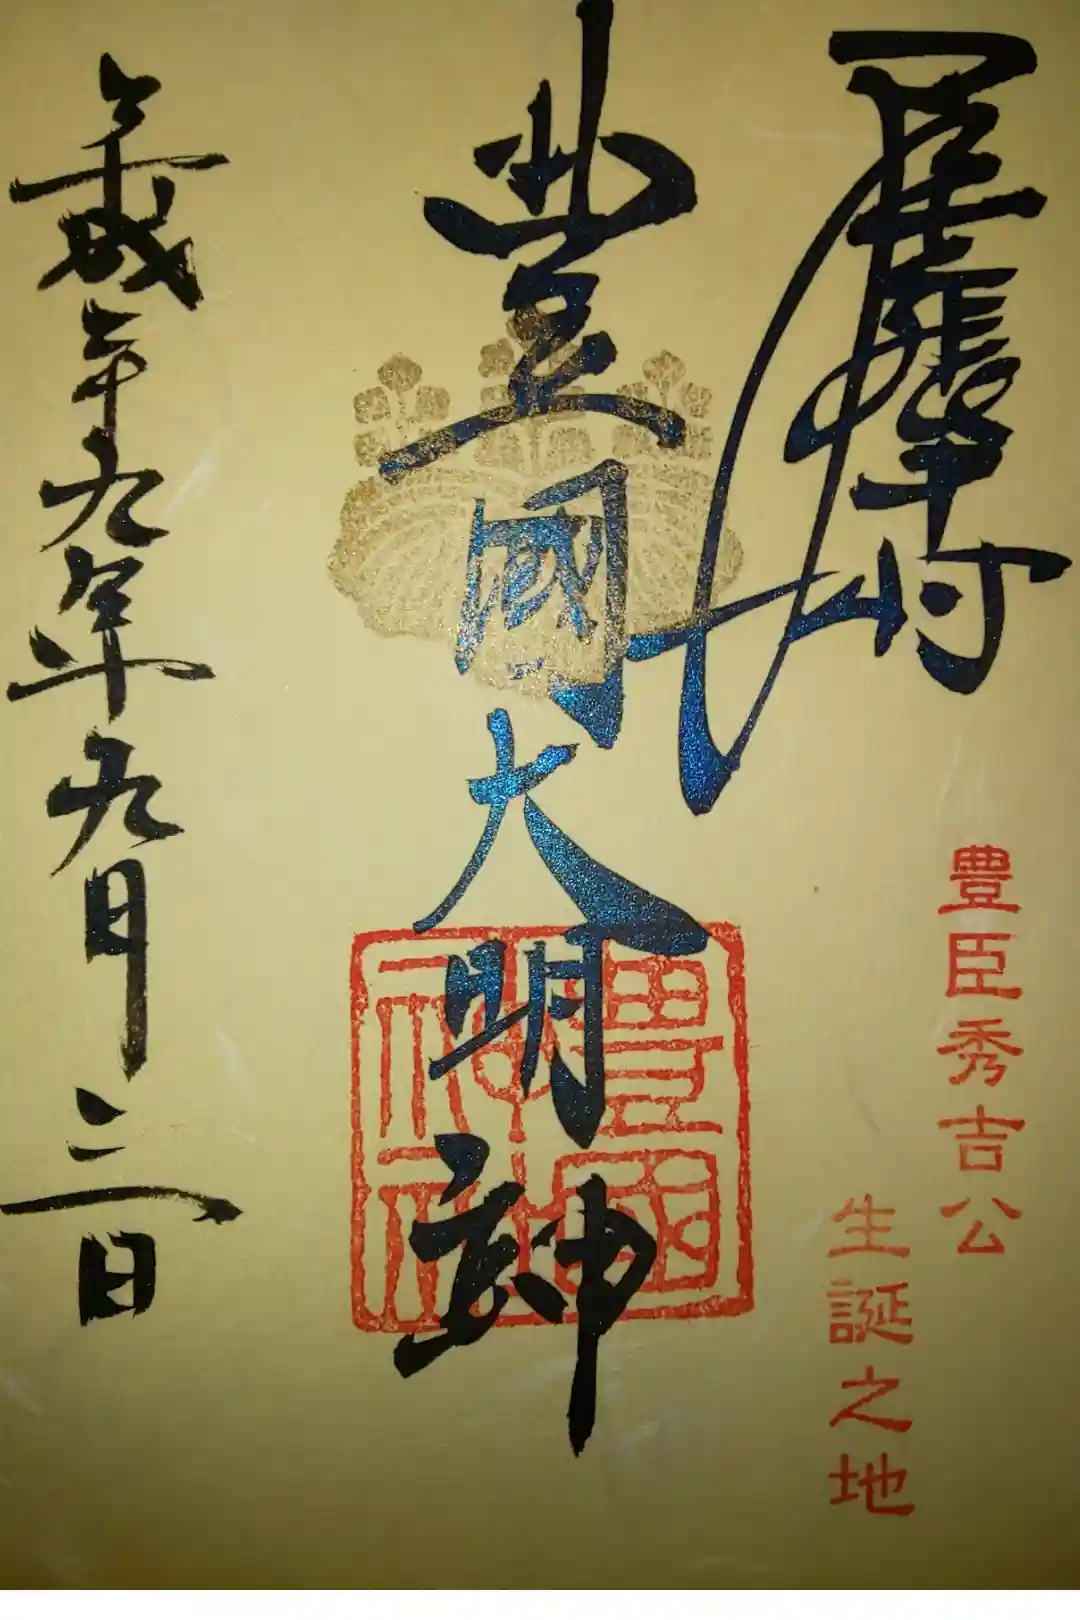 豊臣秀吉公
生誕之地
豊國大明神
豊國
神社
平成二十九年九月三日